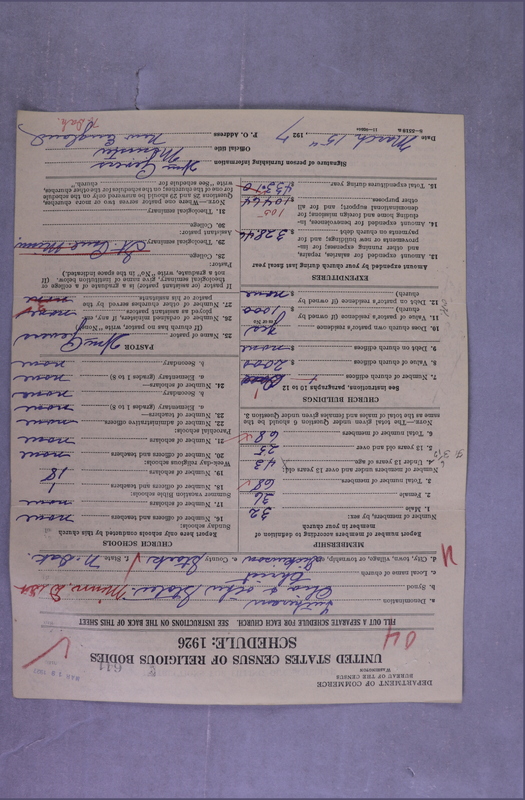 DEPARTMENT OF COMMERCE
BUREAU OF THE CENSUS
WASHINGTON
UNITED STATES CENSUS OF RELIGIOUS BODIES
SCHEDULE: 1926
FILL OUT A SEPARATE SCHEDULE FOR EACH CHURCH. SEE INSTRUCTIONS ON THE BACK OF THIS SHEET
a. Denomination Lutheran
b. Synod Ohio & other States Minn. Dist
c. Local name of church Christ
d. City, town, village, or township, etc. Dickinson e. County Stark f. State N. Dak.
MEMBERSHIP
Report number of members according to definition of member in your church
Number of members, by sex:
1. Male 32
2. Female 36
3. Total number of members 68
Number of members under and over 13 years old:
4. Under 13 years of age 43
5. 13 years old and over 25
6. Total number of members 68
NOTE.—Total given under Question 6 should be the same as the total of males and females given under Question 3.
CHURCH BUILDINGS
See instructions, paragraphs 10 to 12
7. Number of church edifices
8. Value of church edifices $ 2000
9. Debt on church edifices $ none
10. Does church own pastor's residence
11. Value of pastor's residence (if owned by church) $ 1000
12. Debt on pastor's residence (if owned by church) $ none
EXPENDITURES
Amount expended by your church during last fiscal year
13. Amount expended for salaries, repairs, and other running expenses; for improvements or new buildings; and for payments on church debt $
14. Amount expended for benevolences, including home and foreign missions; for denominational support; and for all other purposes $
15. Total expenditures during year $
CHURCH SCHOOLS
Report here only schools conducted by this church
Sunday schools:
16. Number of officers and teachers none
17. Number of scholars none
Summer vacation Bible schools:
18. Number of officers and teachers 1
19. Number of scholars 18
Weekday religious schools:
20. Number of officers and teachers none
21. Number of scholars none
Parochial schools:
22. Number of administrative officers none
23. Number of teachers—
a. Elementary (grades 1 to 8) none
b. Secondary none
24. Number of scholars—
a. Elementary (grades 1 to 8) none
b. Secondary none
PASTOR
25. Name of pastor
(If church has no pastor, write "None")
26. Number of assistant ministers, if any, employed as assistant pastors none
27. Number of other churches served by the pastor or his assistants
If pastor or assistant pastor is a graduate of a college or theological seminary, give name of institution below. (If not a graduate, write "No" in the space indicated.)
Pastor:
28. College
29. Theological seminary St. Paul Minn.
Assistant pastor:
30. College
31. Theological seminary
NOTE.—When one pastor serves two or more churches, Questions 25 to 29 should be answered only on the schedule for one of the churches; on the schedules for the other churches, write "See Schedule for church."
Signature of person furnishing information
Official title Minister
P. O. Address New England
N. Dak.
Date March 15th, 1927